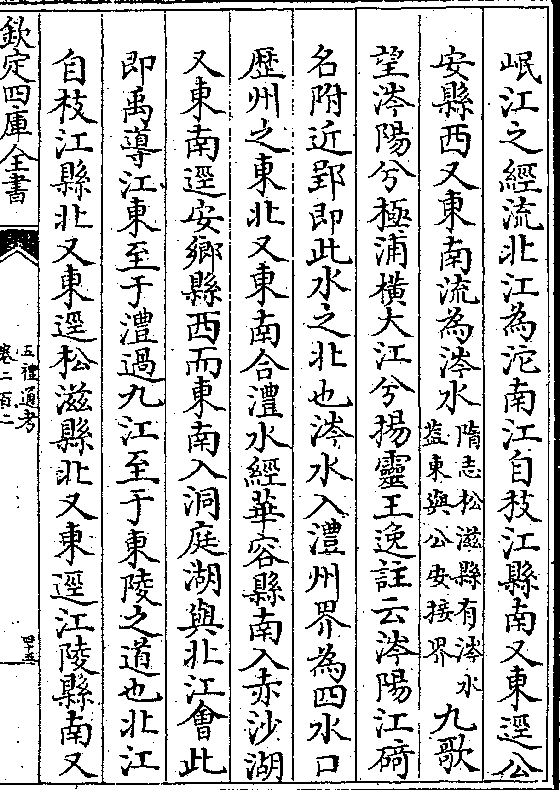 岷江之經流北江為沱南江自枝江縣南又東逕公
安縣西又東南流為涔水隋志松滋縣有涔水蓋東與公安接界九歌
望涔陽兮極浦橫大江兮揚靈王逸註云涔陽江碕
名附近郢即此水之北也涔水入澧州界為四水口
歴州之東北又東南合澧水經華容縣南入赤沙湖
又東南逕安鄉縣西而東南入洞庭湖與北江會此
即禹導江東至于澧過九江至于東陵之道也北江
自枝江縣北又東逕松滋縣北又東逕江陵縣南又
欽定四庫全書
五禮通考
卷二百二
四十五